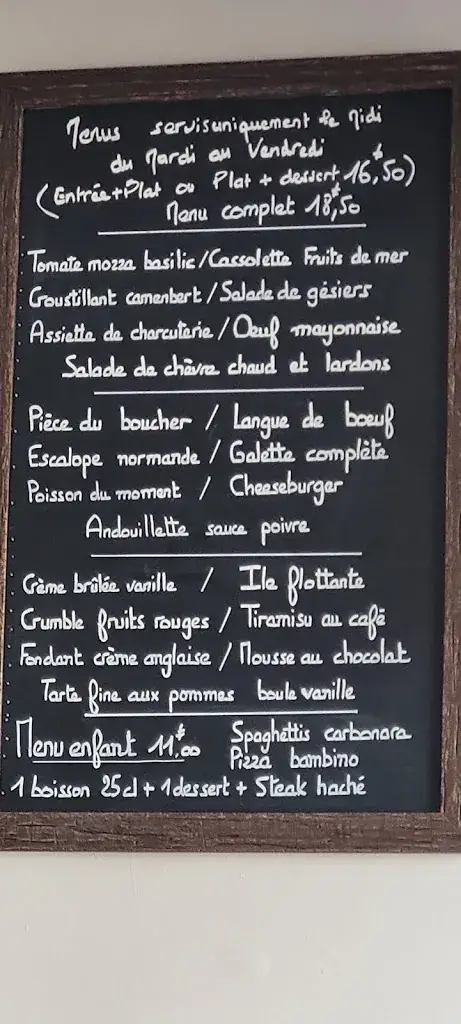 Menus servis uniquement le Midi
du Mardi au Vendredi
(Entrée+Plat ou Plat + dessert 16€,50)
Menu complet 18€,50
Tomate mozza basilic/Cassolette Fruits de mer
Croustillant camenbert / Salade de gésiers
Assiette de charcuterie / Œuf mayonnaise
Salade de chèvre chaud et lardons
Pièce du boucher / Langue de boeuf
Escalope normande / Galette complète
Poisson du moment / Cheeseburger
Andouillette sauce poivre
Crème brûlée vanille / Ile flottante
Crumble fruits rouges / Tiramisu au café
Fondant crème anglaise / Mousse au chocolat
Tarte fine aux pommes boule vanille
Menu enfant 11€,00 Spaghettis carbonara
Pizza bambino
1 boisson 25cl + 1 dessert + Steak haché